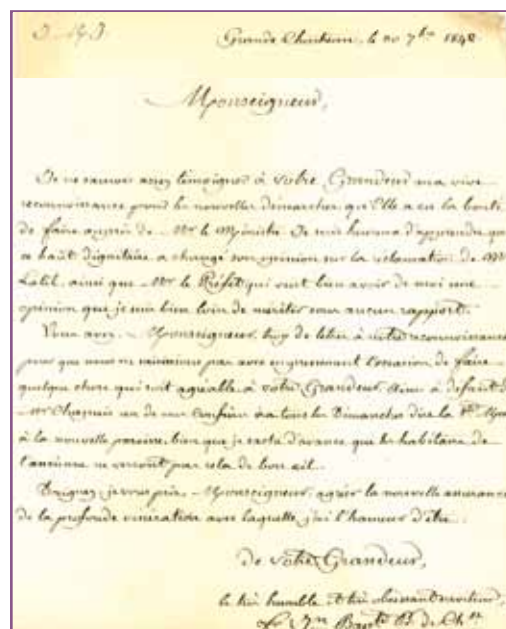 Grande Chartreuse, le 20 7bre 1842
Monseigneur,
Je ne saurais assez témoigner à Votre Grandeur ma vive
reconnaissance pour les nouvelles démarches qu'Elle a eu la bonté
de faire auprès de Mr le Ministre. Je suis heureux d'apprendre que
ce haut dignitaire a changé son opinion sur la réclamation de Mr
ainsi que Mr le Préfet qui veut bien avoir de moi une
opinion que je suis bien loin de mériter sous aucun rapport.
Vous avez, Monseigneur, trop de titres à notre reconnaissance
pour que nous ne saisissions pas avec empressement l'occasion de faire
quelque chose qui soit agréable à Votre Grandeur. Ainsi à défaut de
Mr un de nos Confrères ira tous les Dimanches dire la Ste Messe
à la nouvelle paroisse, bien que je sache d'avance que les habitans de
l'ancienne ne verront pas cela de bon œil.
Daignez, je vous prie, Monseigneur, agréer la nouvelle assurance
de la profonde vénération avec laquelle j'ai l'honneur d'être
de Votre Grandeur,
le très humble et très obéissant serviteur,